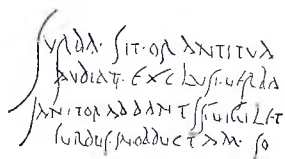 SURDA·SIT·ORANTI TUA
AUDIAT·EXCLUSI·UERBA
IANITOR AD DANTIS UIGILET
SURDUS·IN OBDUCTAM·SO